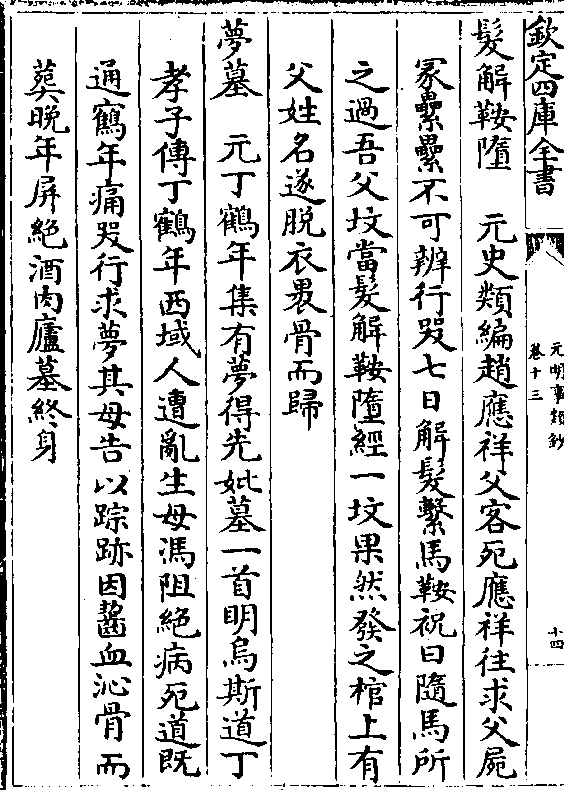 欽定四庫全書
元明事類鈔
卷十三
十四
髮解鞍墮　元史類編趙應祥父客死應祥往求父屍
冢纍纍不可辨行哭七日解髮繫馬鞍祝曰隨馬所
之過吾父墳當髮解鞍墮經一墳果然發之棺上有
父姓名遂脱衣裹骨而歸
夢墓　元丁鶴年集有夢得先妣墓一首明烏斯道丁
孝子傳丁鶴年西域人遭亂生母馮阻絶病死道既
通鶴年痛哭行求夢其母告以踪跡因齧血沁骨而
葬晚年屏絶酒肉廬墓終身